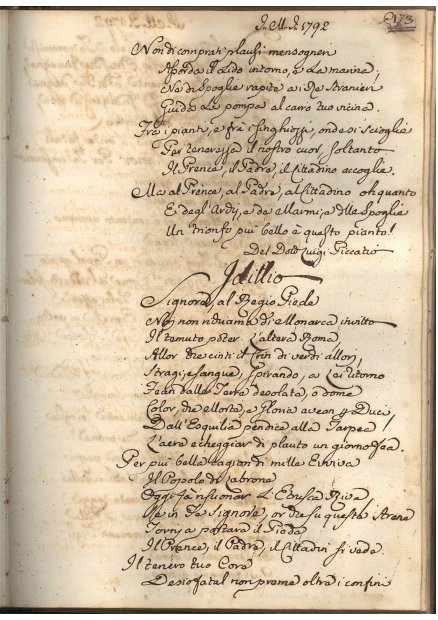 173
J. M. J. 1792
Non di comprati plausi mensogneri
Assorda il Lido intorno, e La marina,
Nè di Spoglie rapite a i Re Stranieri
Guida La pompa al carro tuo vicina.
Frà i pianti, e frà i singhiozzi, onde si scioglie
Per tenerezza il nostro cuor, soltanto
Il Prence, il Padre, il Cittadino accoglie.
Ma al Prence, al Padre, al Cittadino oh quanto
E degl'Archi, e de Marmi, e delle Spoglie
Un trionfo più bello è questo pianto!
Del Dott. Luigi Piccatio
Idillio
Signore, al Regio Piede
Noi non di Monarca invitto
Il temuto poter L'altera Roma,
Allor che cinti il crin di verdi allori,
Stragi, e sangue, spirando, a Lei ritorno
Fean dalla Terra desolata, o doma
Color, che Morte, e Gloria avean p Duci,
Dall'Esquilia pendice alla Tarpea
L'aere echeggiar di plauto un giorno fea.
Per più bella cagion di mille Evviva
Il Popolo di Labrone
Oggi fà risuonar L'Etrusca Riva,
Che in Te Signore, or che su queste Arene
Torni a portare il Piede
Il Prence, il Padre, il Cittadin si vede.
Il tenero tuo Core
Desio fatal non preme oltre i confini